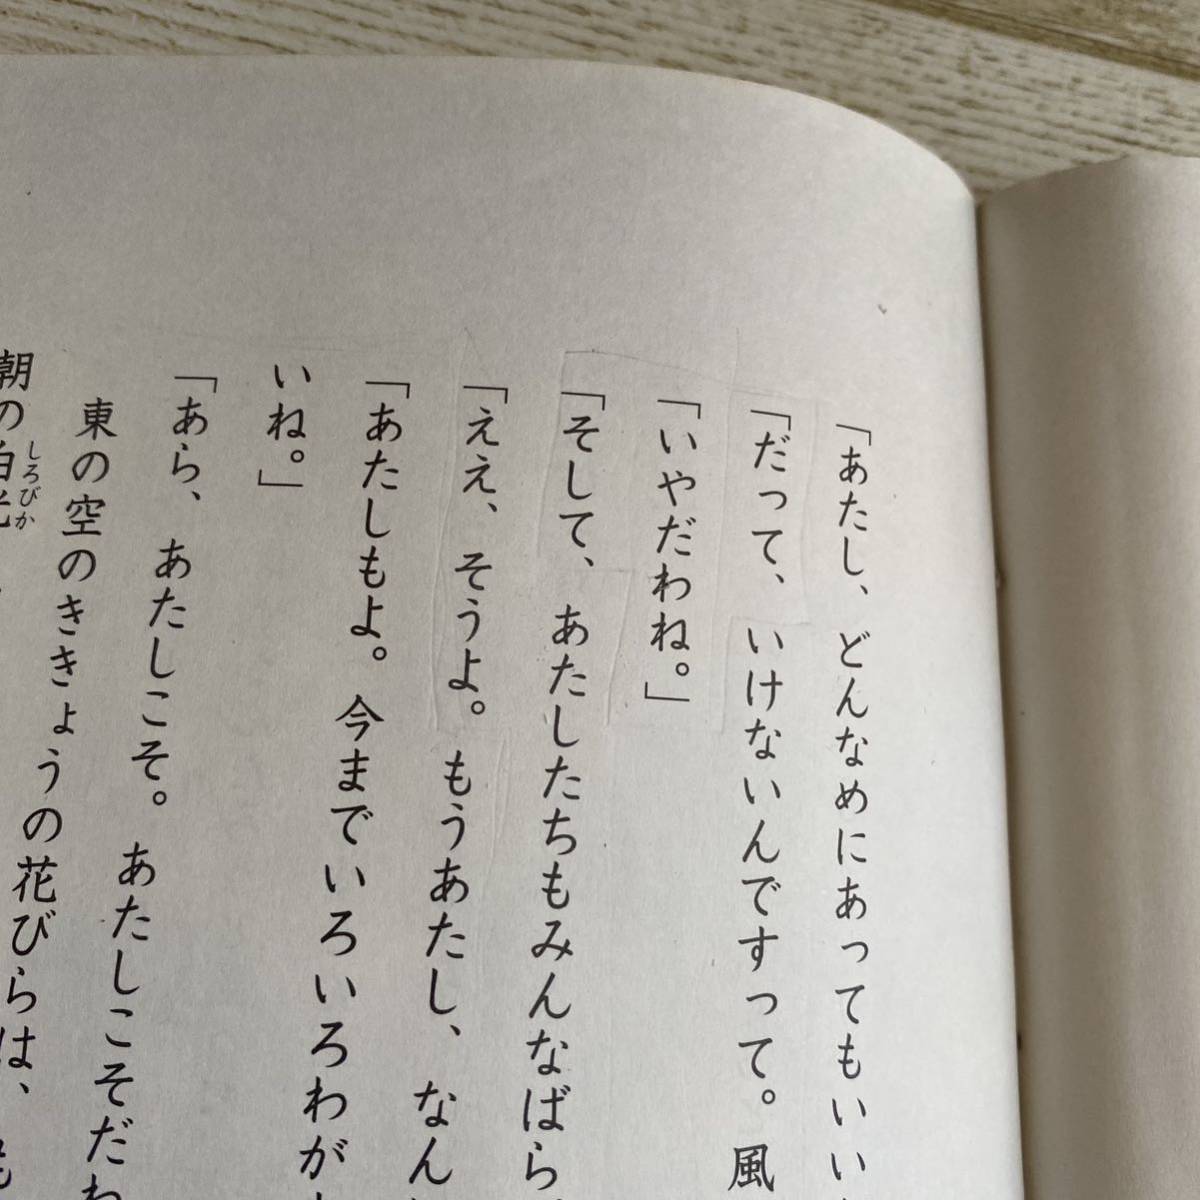 「あたし、どんなめにあってもいい
「だって、いけないんですって。風
「いやだわね。」
「そして、あたしたちもみんなばら
「ええ、そうよ。もうあたし、なん
「あたしもよ。今までいろいろわが
いね。」
「あら、あたしこそ。あたしこそだわ
東の空のききょうの花びらは、
朝の白光
しろびか